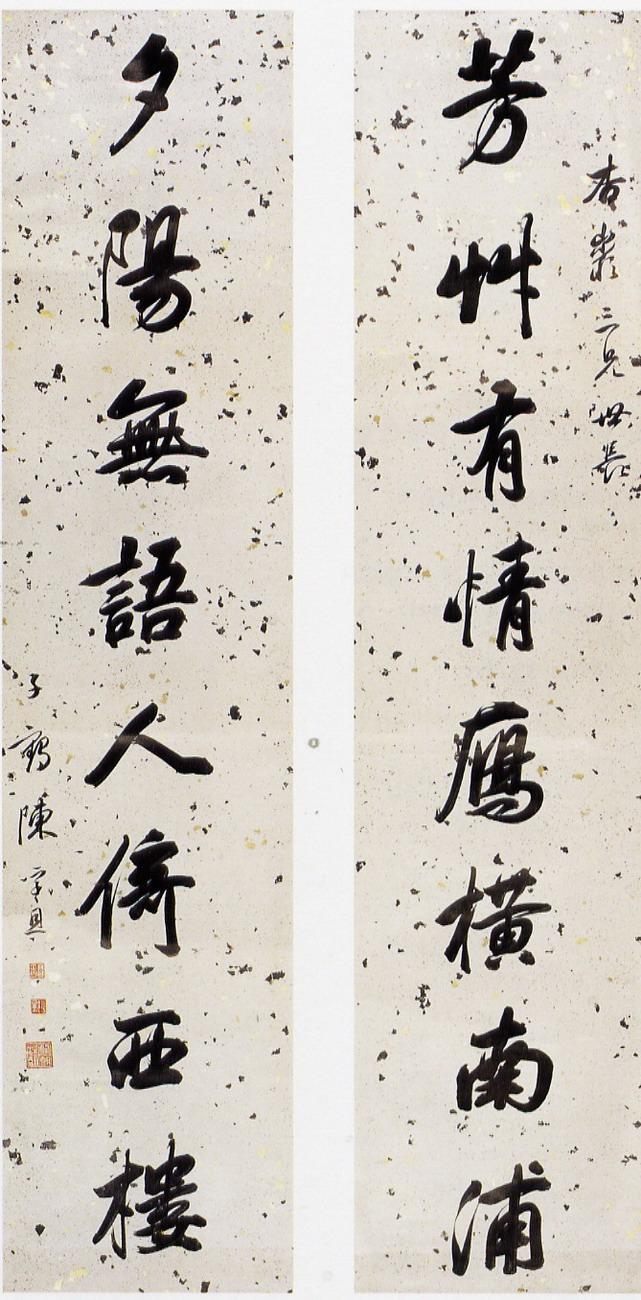 杏叢三兄世長
芳艸有情鴈橫南浦
夕陽無語人倚西樓
子鶴陳孚恩